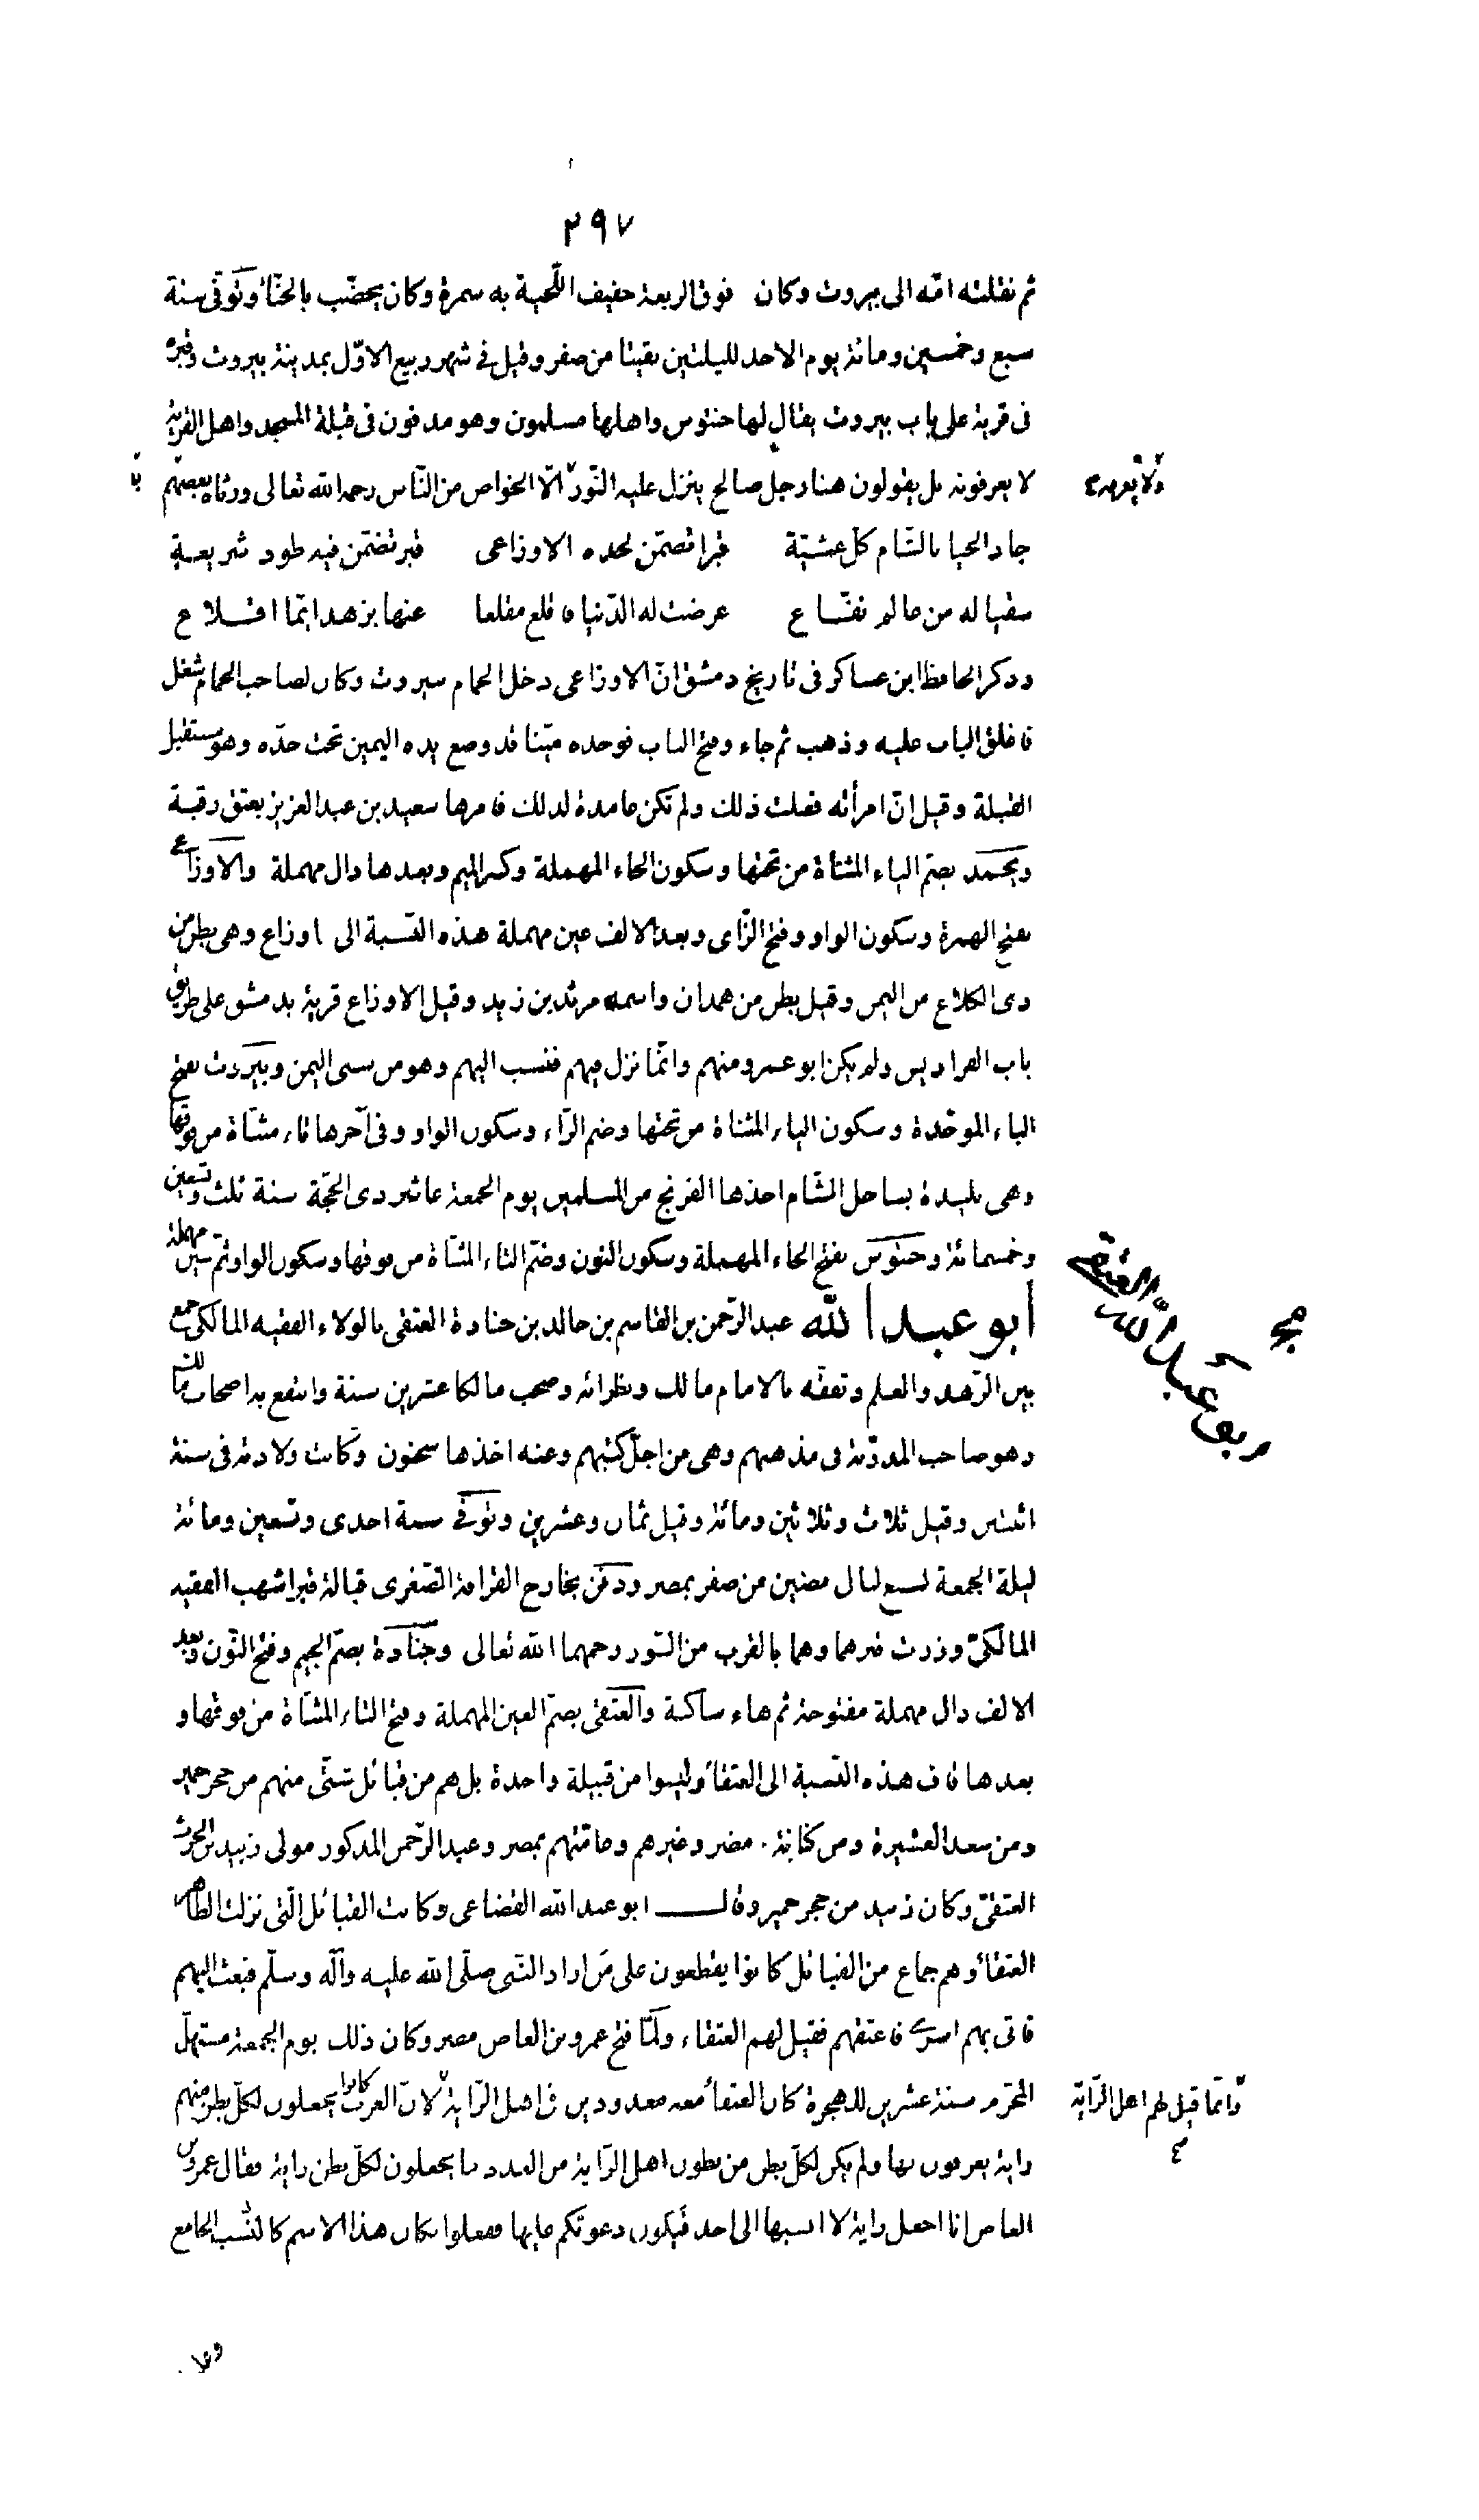 ٢٩٧
ثم نقلته امّه الى بيروت وكان فوق الربعة خفيف اللّحية به سمرة وكان يخضّب بالحنّاء وتوفّى سنة
سبع وخمسين ومائة يوم الاحد لليلتين بقيتا من صفر وقيل فى شهر ربيع الاوّل بمدينة بيروت وقبره
فى قرية على باب بيروت يقال لها حنتوس واهلها مسلمون وهو مدفون فى قبلة المسجد واهل القرية
لا يعرفونه بل يقولون هنا رجل صالح ينزل عليه النّور الّا الخواص من النّاس رحمه الله تعالى ورثاه بعضهم
ولا يعرفه
جاد الحيا بالشّام كلّ عشيّة قبرا تضمّن لحده الاوزاعى قبر تضمّن فيه طود شريعة
سقيا له من عالم نفّاع عرضت له الدّنيا فاقلع مقلعا عنها بزهد ايّما اقلاع
وذكر الحافظ ابن عساكر فى تاريخ دمشق انّ الاوزاعى دخل الحمام ببيروت وكان لصاحب الحمام شغل
فاغلق الباب عليه وذهب ثم جاء وفتح الباب فوجده ميّتا قد وضع يده اليمين تحت خدّه وهو مستقبل
القبلة وقيل انّ امرأته فعلت ذلك ولم تكن عامدة لذلك فامرها سعيد بن عبد العزيز بعتق رقبة
ويحمد بضمّ الياء المثنّاة من تحتها وسكون الحاء المهملة وكسر الميم وبعدها دال مهملة والاوزاعى
بفتح الهمزة وسكون الواو وفتح الزّاى وبعد الالف عين مهملة هذه النّسبة الى اوزاع وهى بطن من
ذى الكلاع من اليمن وقيل بطن من همدان واسمه مرثد بن زيد وقيل الاوزاع قرية بدمشق على طريق
باب الفراديس ولم يكن ابو عمرو منهم وانّما نزل فيهم فنسب اليهم وهو من سبى اليمن وبيروت بفتح
الباء الموحّدة وسكون الياء المثناة من تحتها وضم الرّاء وسكون الواو وفى آخرها تاء مثنّاة من فوقها
وهى بليدة بساحل الشّام اخذها الفرنج من المسلمين يوم الجمعة عاشر ذى الحجّة سنة ثلث وتسعين
وخمسمائة وحنتوس بفتح الحاء المهملة وسكون النون وضمّ التاء المثنّاة من فوقها وسكون الواو ثمّ سين مهملة
أبو عبد الله عبد الرّحمن بن القاسم بن خالد بن جنادة العتقى بالولاء الفقيه المالكى جمع
ابو عبد الله العتقى
بين الزّهد والعلم وتفقّه بالامام مالك ونظرائه وصحب مالكا عشرين سنة وانتفع به اصحاب مالك
وهو صاحب المدوّنة فى مذهبهم وهى من اجلّ كتبهم وعنه اخذها سحنون وكانت ولادته فى سنة
اثنتين وقيل ثلاث وثلاثين ومائة وقيل ثمان وعشرين وتوفّى سنة احدى وتسعين ومائة
ليلة الجمعة لسبع ليال مضين من صفر بمصر ودفن بخارج القرافة الصّغرى قبالة قبر اشهب الفقيه
المالكىّ وزرت قبرهما وهما بالقرب من السّور رحمهما الله تعالى وجنادة بضمّ الجيم وفتح النّون وبعد
الالف دال مهملة مفتوحة ثم هاء ساكنة والعتقى بضمّ العين المهملة وفتح التاء المثنّاة من فوقها و
بعدها قاف هذه النّسبة الى العتقاء وليسوا من قبيلة واحدة بل هم من قبائل شتّى منهم من حجر حمير
ومن سعد العشيرة ومن كنانة مضر وغيرهم وعامّتهم بمصر وعبد الرّحمن المذكور مولى زبيد بن الحرث
العتقىّ وكان زبيد من حجر حمير وقال ابو عبد الله القضاعى وكانت القبائل الّتى نزلت الظاهر
العتقاء وهم جماع من القبائل كانوا يقطعون على من اراد النّبى صلّى الله عليه وآله وسلّم فبعث اليهم
فاتى بهم اسرى فاعتقهم فقيل لهم العتقاء ولمّا فتح عمرو بن العاص مصر وكان ذلك يوم الجمعة مستهلّ
المحّرم سنة عشرين للهجرة كان العتقاء معه معدودين فى اهل الرّاية لانّ العرب كانوا يجعلون لكلّ بطن منهم
وانّما قيل لهم اهل الرّاية
راية يعرفون بها ولم يكن لكلّ بطن من بطون اهل الرّاية من العدد ما يجعلون لكلّ بطن راية فقال عمرو بن
العاص انا اجعل راية لا انسبها الى احد فيكون دعوتكم عليها ففعلوا فكان هذا الاسم كالنّسب الجامع